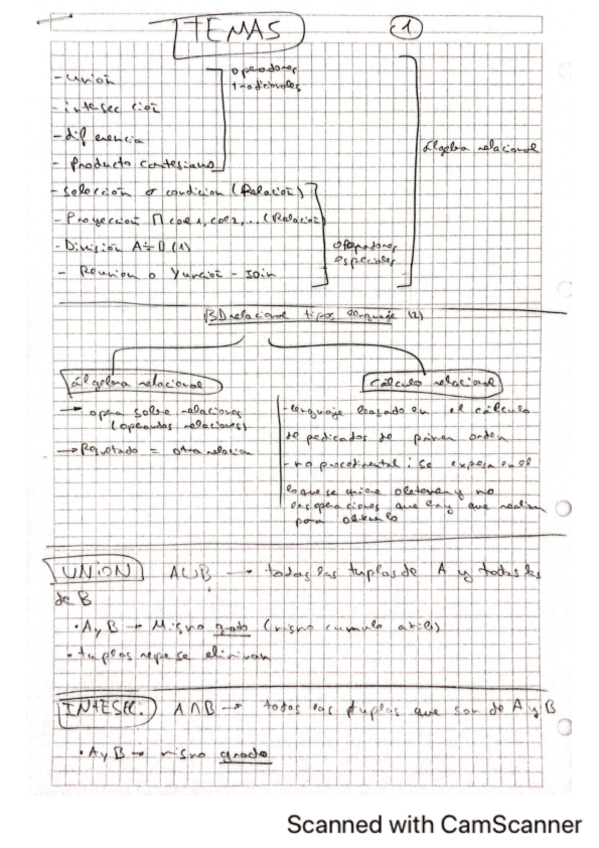 TEMAS
1
- unión
operadores
tradicionales
- intersección
- diferencia
Álgebra relacional
- Producto cartesiano
- Selección σ condición (Relación)
- Proyección Π col1, col2, ... (Relación)
- División A÷B (1)
operadores
especiales
- Reunion o Yunción - Join
BD relacional tipos lenguaje (2)
Álgebra relacional
→ opera sobre relaciones
(operandos relaciones)
→ Resultado = otra relación
Cálculo relacional
- lenguaje basado en el cálculo
de predicados de primer orden
- no procedimental: Se expresa en él
lo que se quiere obtener y no
las operaciones que hay que realizar
para obtenerlo
UNION A∪B → todas las tuplas de A y todas las
de B
• A y B → Mismo grado (mismo
• tuplas repe se eliminan
INTESEC. A∩B → todas las tuplas que son de A y B
• A y B → mismo grado
Scanned with CamScanner